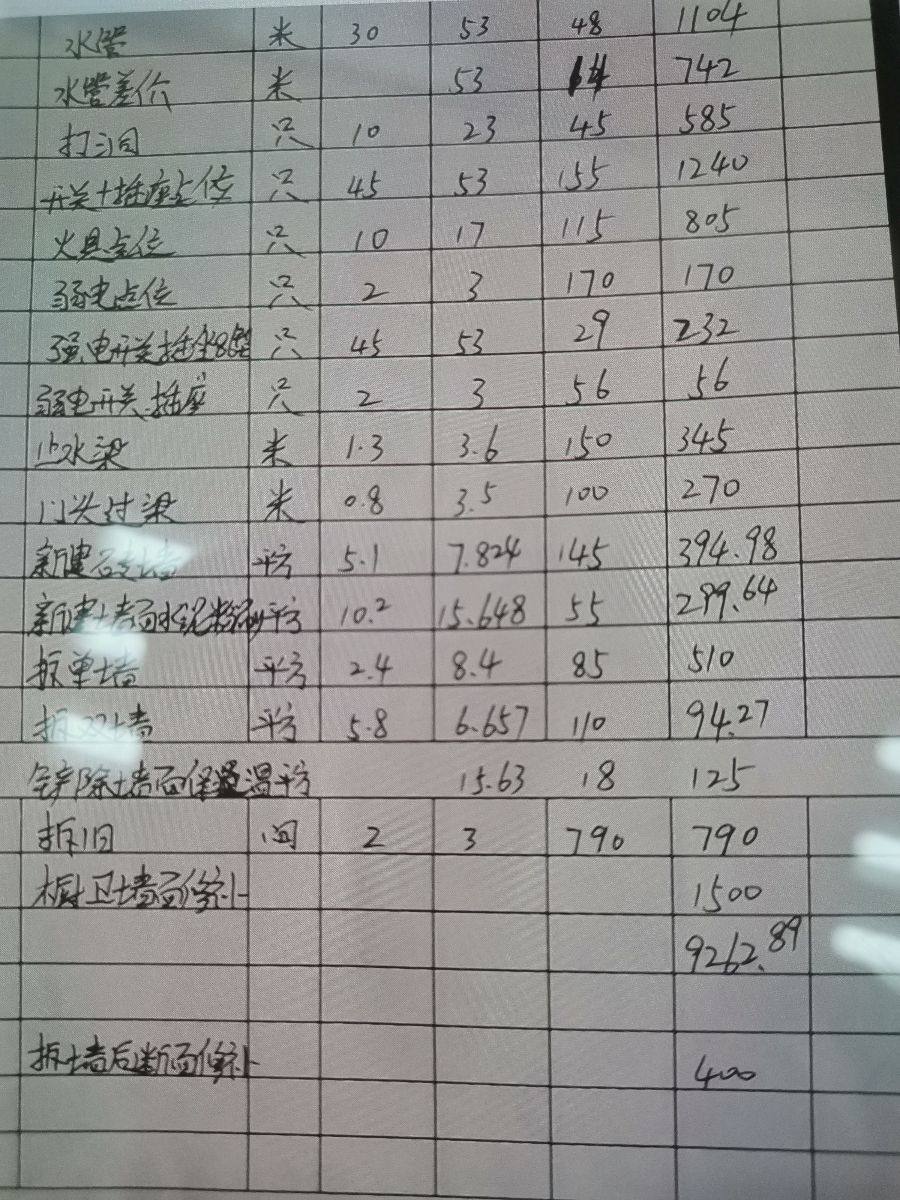 水管 米 30 53 48 1104
水管差价 米 53 14 742
打洞 只 10 23 45 585
开关+插座点位 只 45 53 155 1240
火具点位 只 10 17 115 805
弱电点位 只 2 3 170 170
强电开关插座 只 45 53 29 232
弱电开关.插座 只 2 3 56 56
止水梁 米 1.3 3.6 150 345
门头过梁 米 0.8 3.5 100 270
新建砖墙 平方 5.1 7.824 145 394.98
新建墙面水泥粉刷 平方 10.2 15.648 55 299.64
拆单墙 平方 2.4 8.4 85 510
拆双墙 平方 5.8 6.657 110 94.27
铲除墙面保温 平方 15.63 18 125
拆旧 间 2 3 790 790
橱卫墙面修补 1500
9262.89
拆墙后断面修补 400